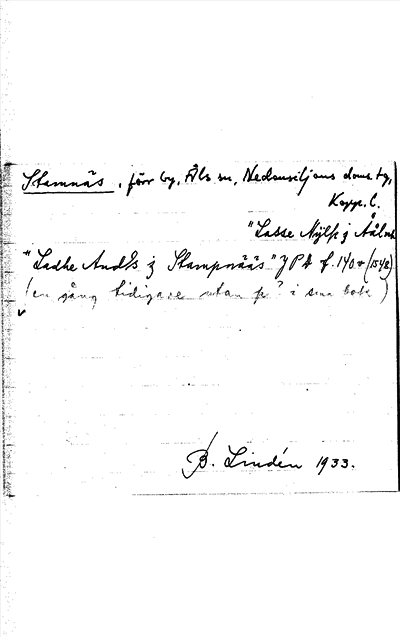 Stamnäs, förr by, Åls sn, Nedansiljans doms. tg,
Kopp. l.
"Lasse Nylss j Åål
"Ladhe Andss j Stampnääs" JPA f. 140 (1542)
(en gång tidigare utan p? i sma bok)
B. Lindén 1933.